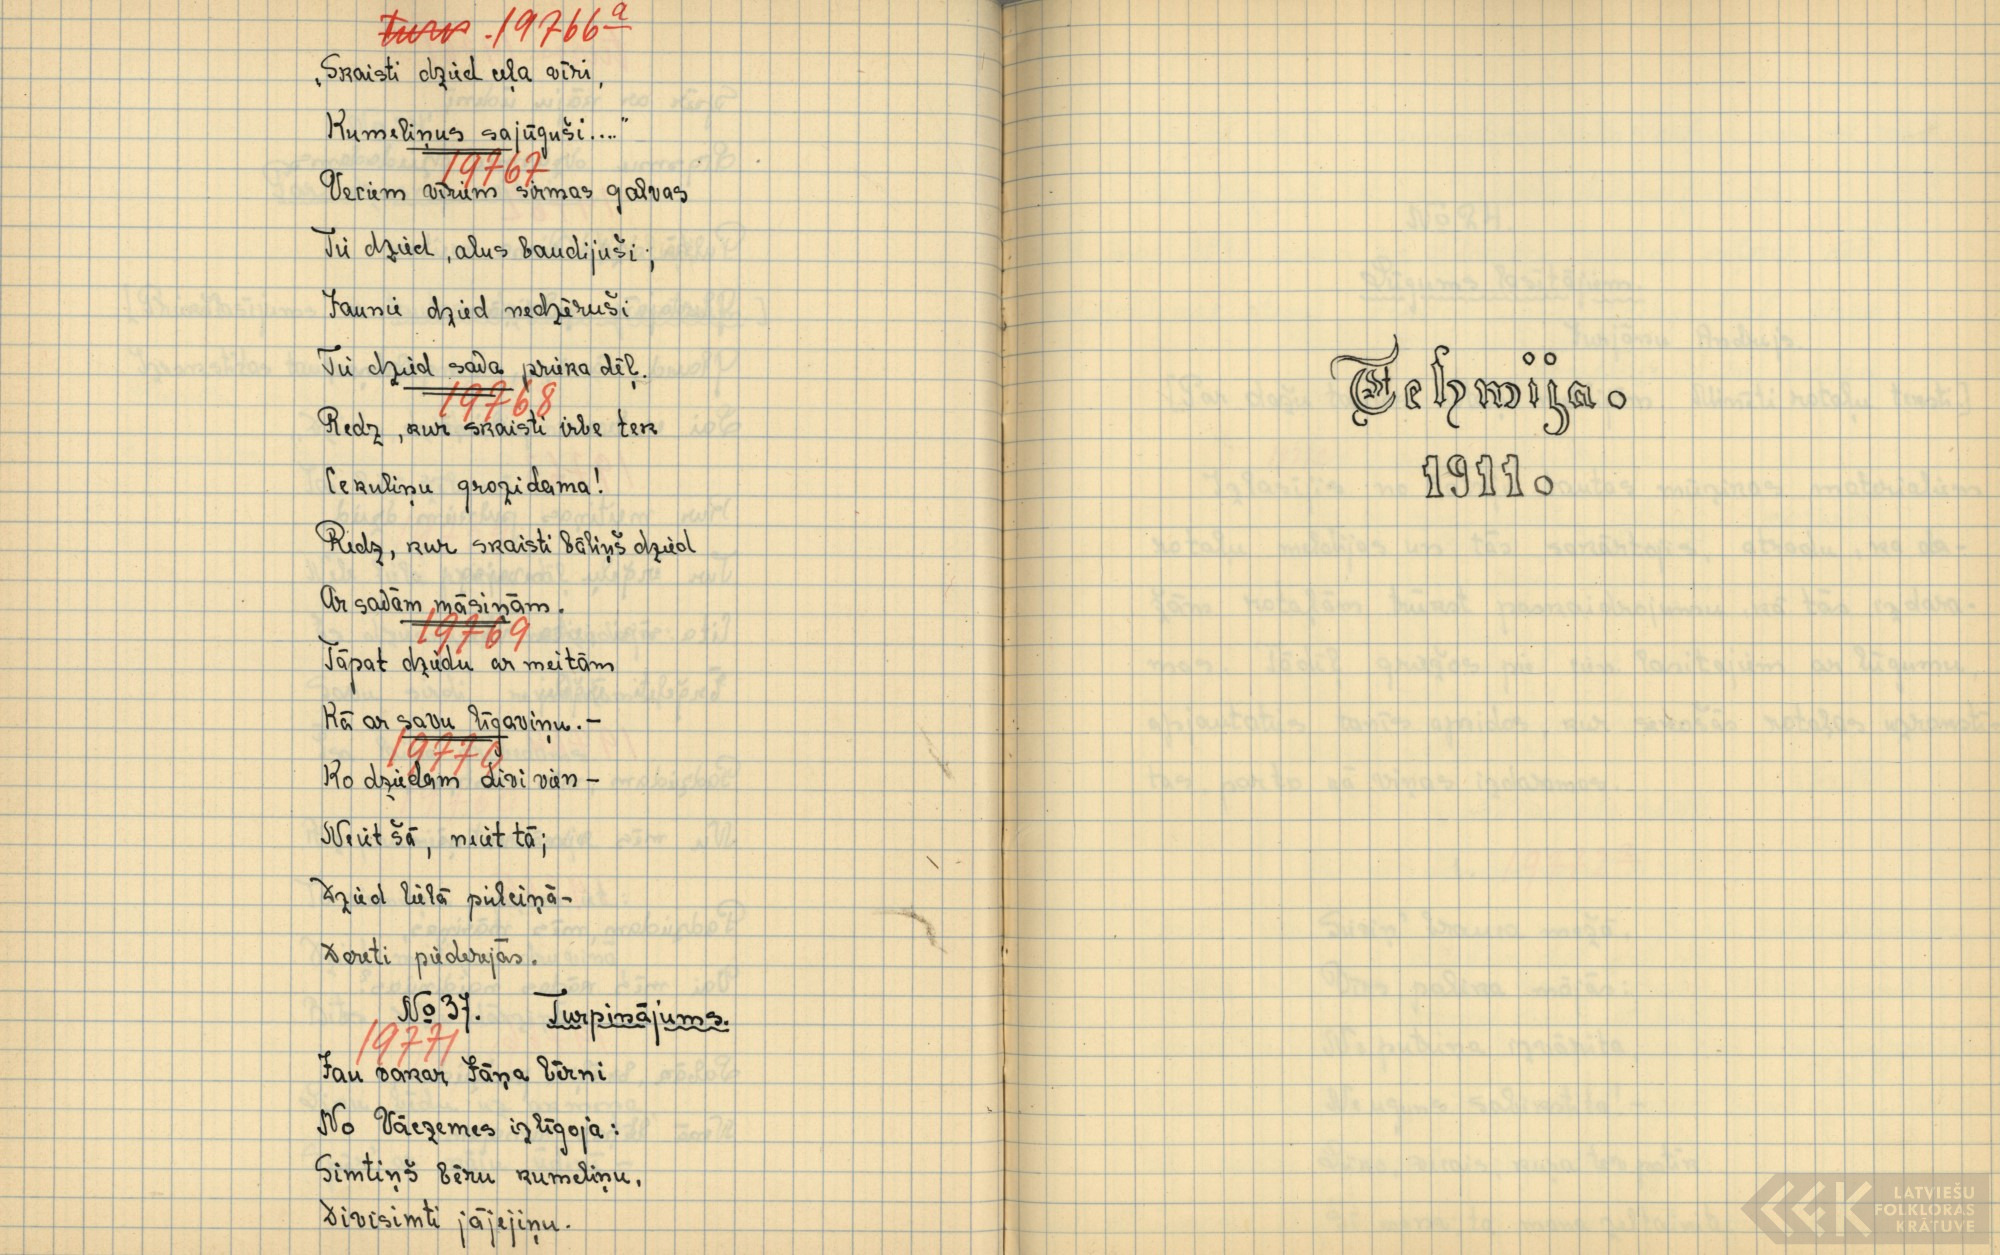 19766a
„Skaisti dzied ceļa vīri,
Kumeliņus sajūguši...."
19767
Veciem vīriem sirmas galvas
Tie dzied, alus baudijuši;
Jaunie dzied nedzēruši
Tie dzied sava prieka dēļ.
19768
Redz, kur skaisti irbe tek
Cekuliņu grozidama!
Redz, kur skaisti bāliņš dzied
Ar savām māsiņām.
19769
Tāpat dziedu ar meitām
Kā ar savu līgaviņu.-
19770
Ko dziedam divi vien -
Neiet šā, neiet tā;
Dzied lielā pulciņā-
Dereti piederejās.
No 37. Turpinājums.
19771
Jau vakar Jāņa bērni
No Vāczemes izlīgoja:
Simtiņš bēru kumeliņu,
Divisimti jājejiņu.
Tehwija.
1911.
LATVIEŠU
FOLKLORAS
KRĀTUVE